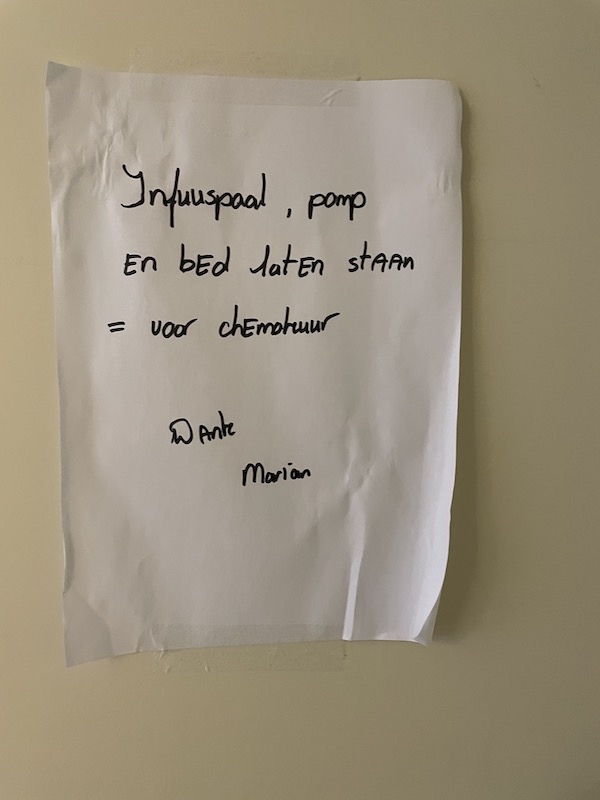 Infuuspaal, pomp
En bEd latEn stAAn
= voor chEmokuur
DAnk
Marian